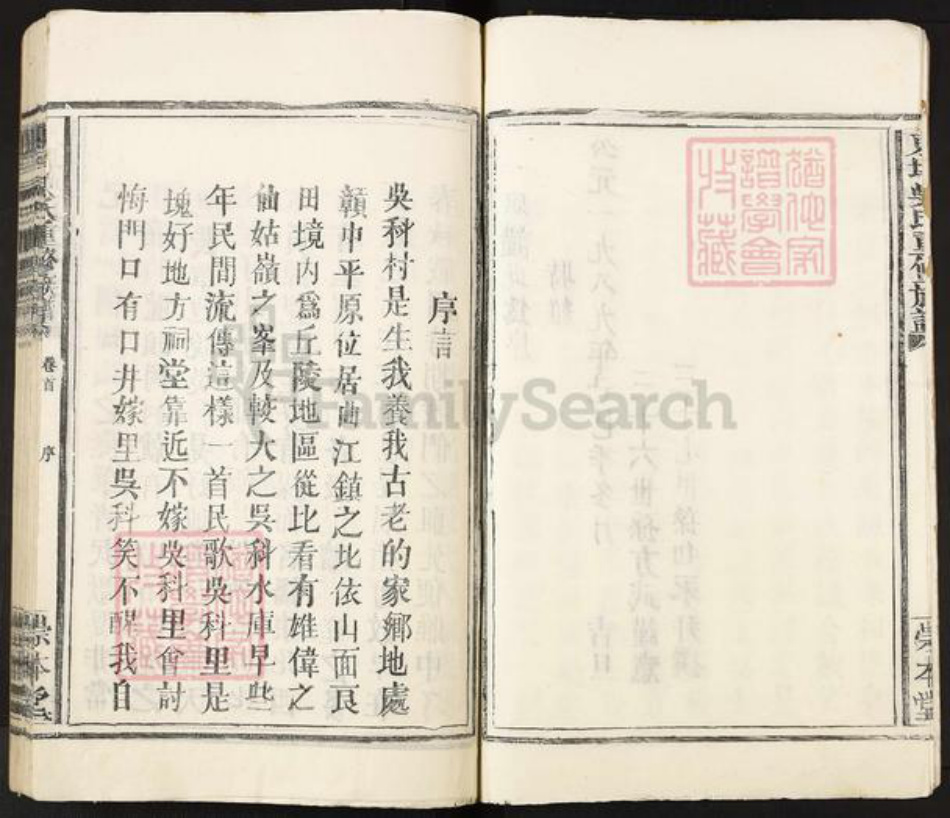 序言
吳科村是生我養我古老的家鄉地處
贛中平原位居曲江鎮之北依山面良
田境內爲丘陵地區從北看有雄偉之
仙姑嶺之峯及較大之吳科水庫早些
年民間流傳這樣一首民歌吳科里是
塊好地方祠堂靠近不嫁吳科里會討
悔門口有口井嫁里吳科笑不醒我自
卷首
序
崇本堂
吳氏重修族譜
崇本堂
FamilySearch